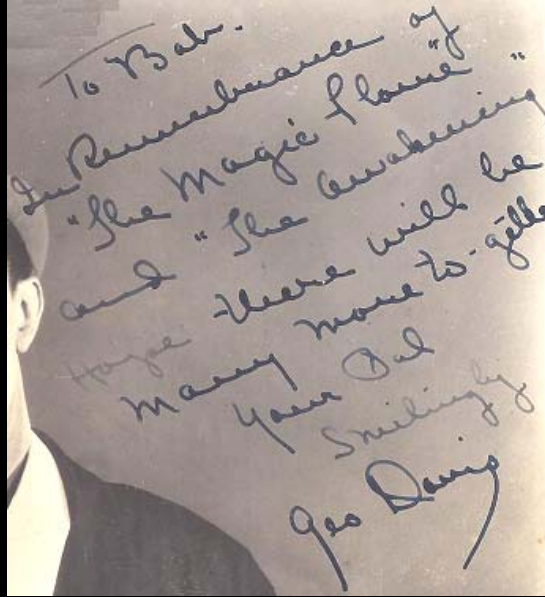 To Bab.
In Remembrance of
"The Magic Flame"
and "The Awakening"
Hope there will be
many more to-gethe
Your Pal
Smilingly
Geo Davis